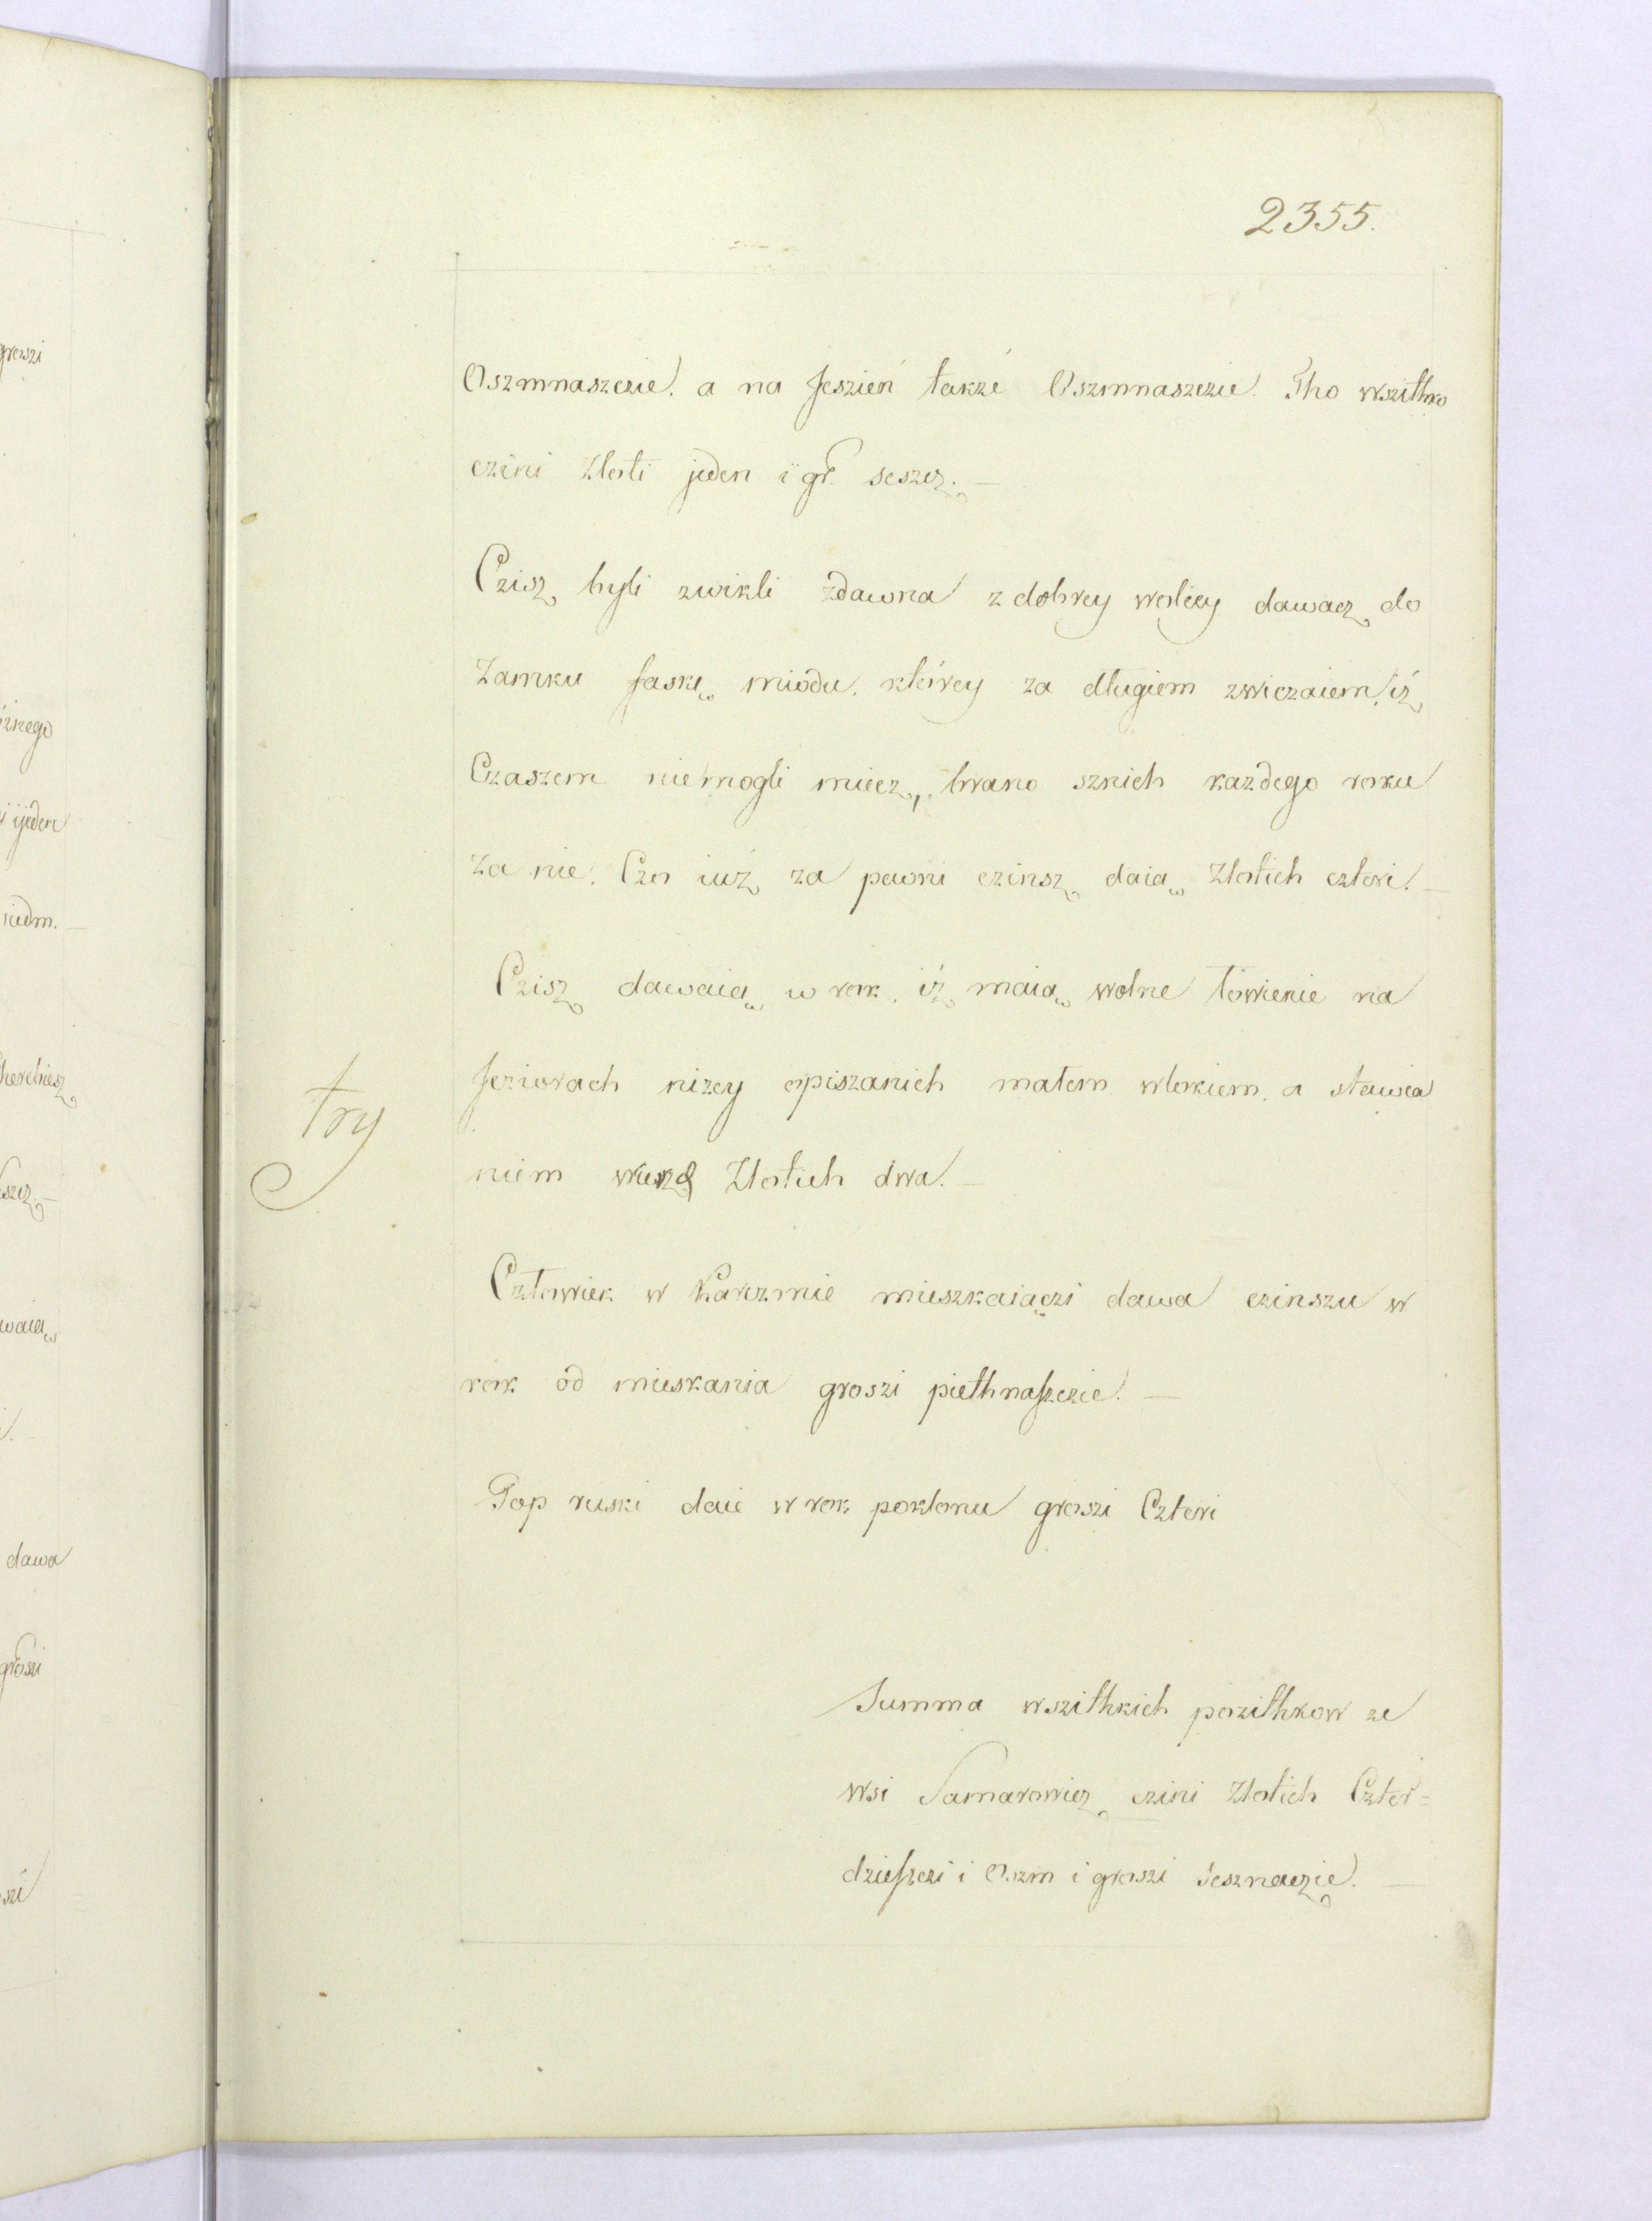 2355.
Oszmnaszczie. a na Jeszień także Oszmnaszczie. Tho wszithko
czini Złoti jeden i gr. szescz. —
Czisz byli zwikli zdawna z dobrey woliey dawacz do
Zamku faskę miodu, ktorey za długiem zwiczaiem, iż
Czaszem niemogli miecz, brano sznich każdego roku
Za nie. Czo iuż za pewni czinsz daią Złotich cztori. —
Czisz dawaią w rok, iż maią wolne łowienie na
Jeziorach niżey opiszanich małem włokiem, a stawia
niem Złotich dwa. —
try
Człowiek w Karczmie mieszkaiączi dawa czinszu w
rok od mieskania groszi piethnaszczie. —
Pop ruski daie w rok pokłonu groszi Cztori
Summa wszithkich pozithkow ze
wsi Samarowicz czini Złotich Czter=
dzieszczi i Oszm i groszi szesznaczie. —
groszi
żnego
ijeden
siedm. —
szcz. —
waią
dawa
groszi
szi